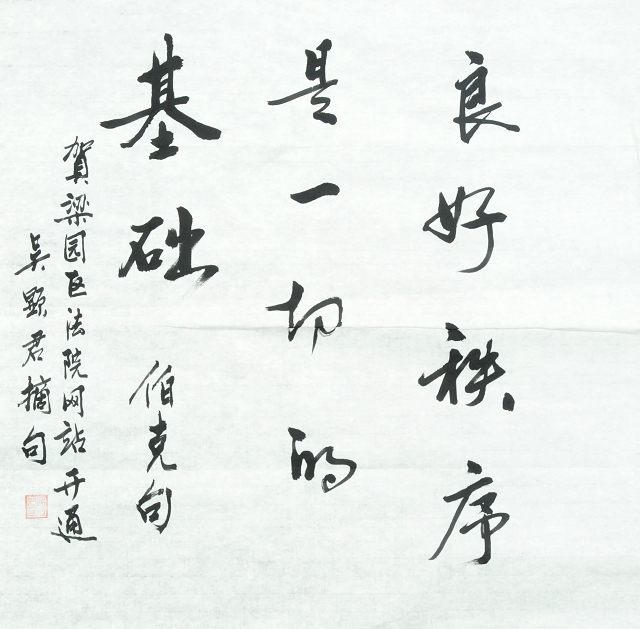 良好秩序
是一切的
基础
伯克句
贺梁园区法院网站开通
吴显君摘句